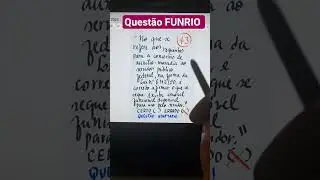 Questão FUNRIO
"No que se
refere aos requisitos
para a concessão de
auxílio-moradia ao
servidor público
federal, na forma da
Lei nº 8.112/90, é
correto afirmar que se
exista imóvel
funcional disponível
para uso pelo servidor."
CERTO ( ) ERRADO (
QUESTÃO ADAPTADA